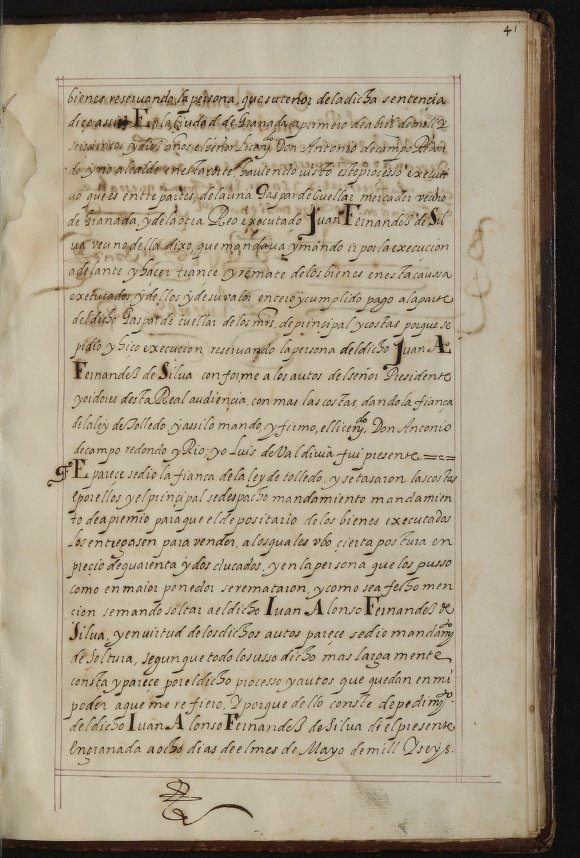 41
bienes reservando la persona, que su tenor de la dicha sentençia
dice assi En la ciudad de Granada a primero de abril de mill y
seiscientos y dos años, el señor licen.do Don Antonio de campo Redon
do y rio alcalde en esta corte, haviendo visto este processo executi
vo que es entre partes, de la una Gaspar de Cuellar mercader vecino
de Granada, y de la otra Reo executado Juan Fernandeз de Sil
va vecino della dixo, que mandava y mando ir por la execuçion
adelante y hacer trance y remate de los bienes en esta caussa
executados, y dellos y de su valor entero y cumplido pago a la parte
del dicho Gaspar de cuellar de los mrs. de principal y costas porque se
pidio y hico execucion reservando la persona del dicho Juan A.o
Fernandeз de Silva conforme a los autos del señor Presidente
y oidores desta Real audiençia, con mas las costas, dando la fiança
de la ley de Tolledo, y assi lo mando, y firmo, el licen.do Don Antonio
de campo redondo y Rio: yo Luis de Valdivia fui presente
E parece se dio la fiança de la ley de tolledo, y se tasaron las costas
e por ellos y el prinçipal se despacho mandamiento mandamien
to de apremio para que el depositario de los bienes executados
los entregasen para vender, a los quales vbo cierta postura en
precio de quarenta y dos ducados, y en la persona que los pusso
como en maior ponedor se remataron, y como sea fecho men
cion se mando soltar a el dicho Iuan Alonso Fernandeз de
Silva, y en virtud de los dichos autos parece se dio mandam.to
de Soltura, segun que todo lo susso dicho mas largamente
consta y pareçe por el dicho processo y autos que quedan en mi
poder a que me refiero, Y porque dello conste de pedim.to
del dicho Iuan Alonso Fernandeз de Silva di el presente
en granada a ocho dias de el mes de Mayo de mill Y seys.